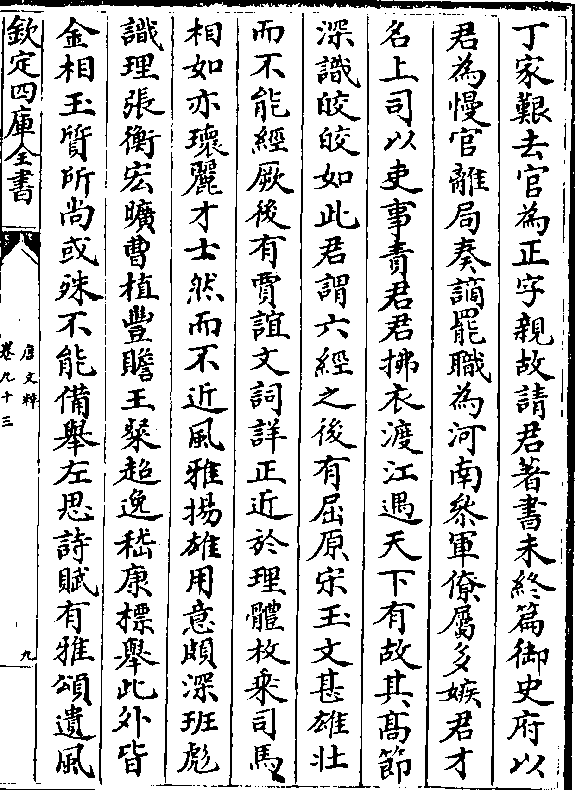 丁家艱去官為正字親故請君著書未終篇御史府以
君為慢官離局奏謫罷職為河南叅軍僚屬多嫉君才
名上司以吏事責君君拂衣渡江遇天下有故其髙節
深識皎皎如此君謂六經之後有屈原宋玉文甚雄壯
而不能經厥後有賈誼文詞詳正近於理體枚乗司馬
相如亦瓌麗才士然而不近風雅揚雄用意頗深班彪
識理張衡宏曠曹植豐贍王粲超逸嵇康標舉此外皆
金相玉質所尚或殊不能備舉左思詩賦有雅頌遺風
欽定四庫全書
唐文粹
卷九十三
九